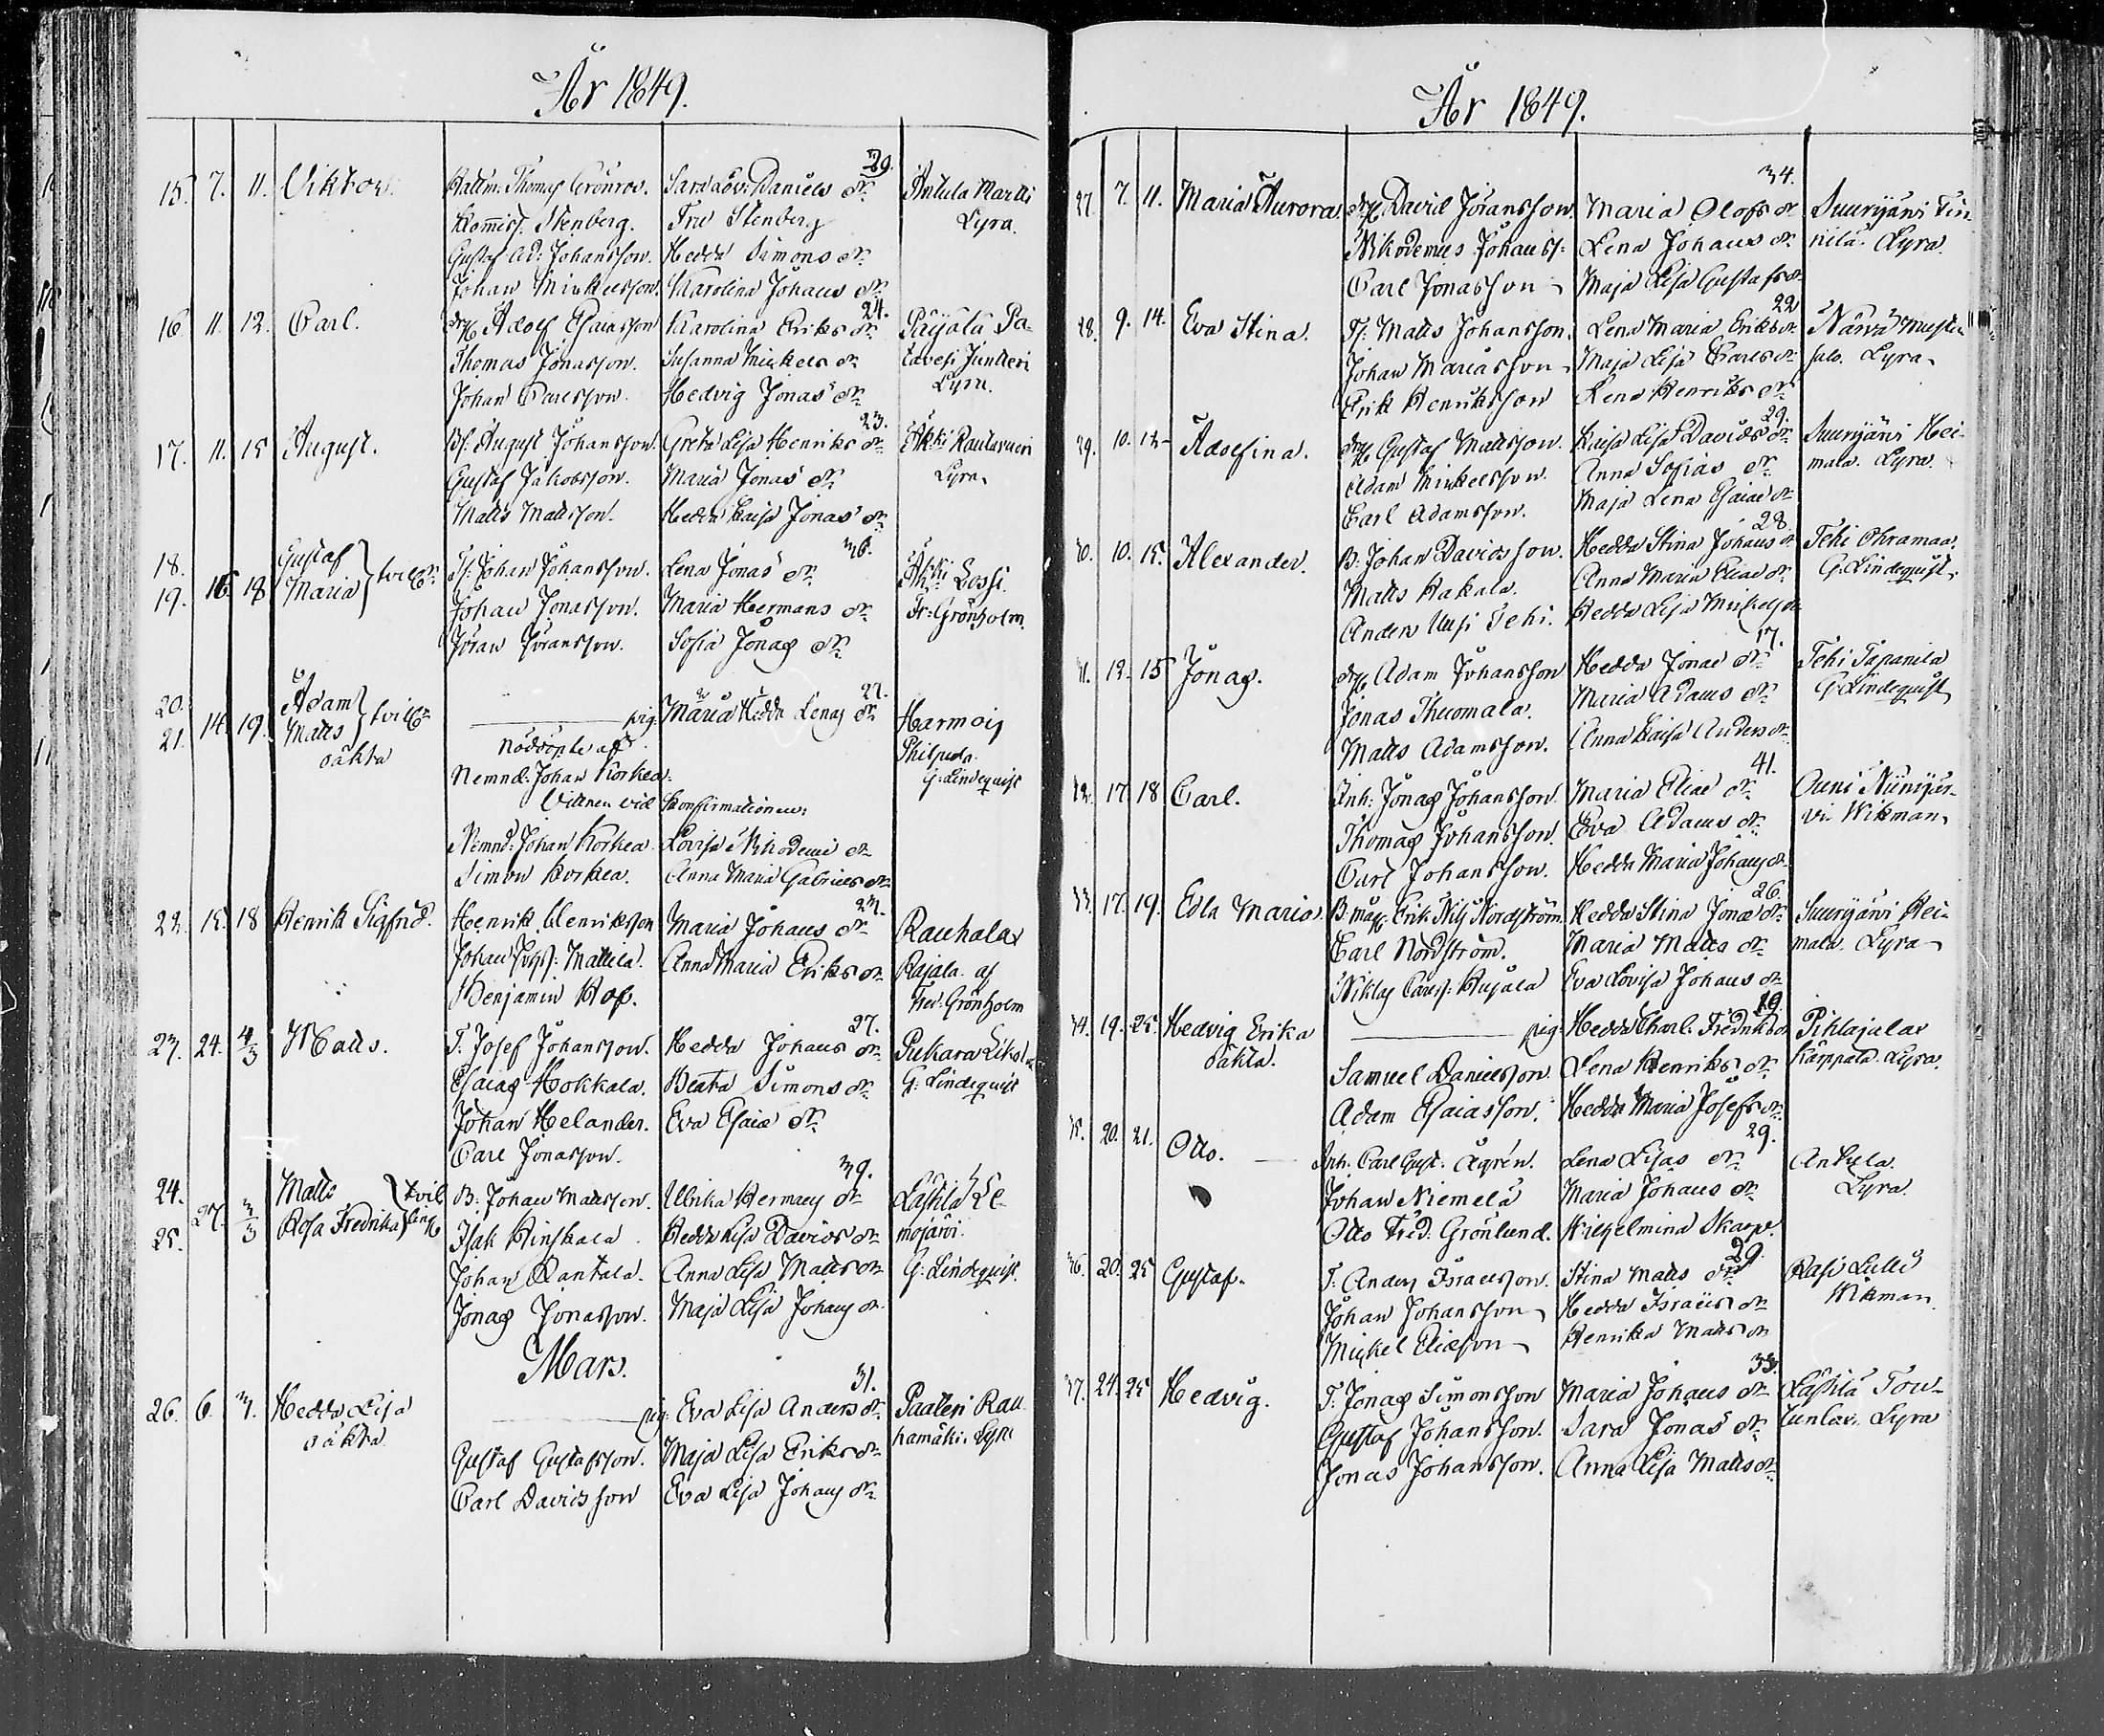 År 1849.
15. 7. 11. Viktor. Hallm. Thomas Grönroos. Sara Lov: Daniels dr 29. Antula Martti
Kommiss. Stenberg. Fru Stenberg Lyra.
Gustaf Ad: Johansson. Hedda Simons dr
Johan Mickelsson. Karolina Johans dr
16. 11. 12. Carl. Adolf Esaiasson Karolina Eriks dr 24. Päijälä Pa-
Thomas Jonasson. Susanna Mickels dr tavesi Juntteri
Johan Carlsson. Hedvig Jonas dr Lyra.
17. 11. 15 August. Bs. August Johansson. Greta Lisa Henriks dr 23. Äkki Rautavuori
Gustaf Jakobsson. Maria Jonas dr Lyra.
Matts Mattsson. Hedda Caisa Jonas dr
18. Gustaf
19. 15 18 Maria Ts. Johan Johansson. Lena Jonas dr 36. Äkki Lossi.
Johan Jonasson. Maria Hermans dr Fr: Grönholm.
Jöran Jöransson. Sofia Jonas dr
20. Adam
21. 14. 19. Matts pig. Maria Hedda Lenas dr 27. Harmois
oäkta Nöddöpte af Philpula
Nemnd: Johan Korkea. G: Lindequist
Vittnen vid konfirmationen:
Nemnd: Johan Korkea. Lovisa Nikodemi dr
Simon Korkea. Anna Maria Gabriels dr
22. 15. 18 Henrik Sigfrid. Henrik Henriksson Maria Johans dr 23. Rauhala
Johan Mattila. Anna Maria Eriks dr Rajala af
Benjamin Hof. Fred: Grönholm
23. 24. 4/3 Matts. T. Josef Johansson. Hedda Johans dr 27. Pukara
Esaias Hokkala. Beata Simons dr G: Lindequist
Johan Helander. Eva Esaiæ dr
Carl Jonasson.
24. Matts tvil
25. 27. 3/3 Rosa Fredrika ling B: Johan Mattsson. Ulrika Hermans dr 39. Lästilä Le-
Isak Hinskala. Hedda Lisa Davids dr mojärvi.
Johan Rantala. Anna Lisa Matts dr G: Lindequist.
Jonas Jonasson. Maja Lisa Johans dr
Mars.
26. 6. 7. Hedda Lisa pig: Eva Lisa Anders dr 31. Paateri Rau
oäkta hamäki. Lyra
Gustaf Gustafsson. Maja Lisa Eriks dr
Carl Davidsson Eva Lisa Johans dr
År 1849.
27. 7. 11. Maria Aurora. David Jöransson. Maria Olofs dr 34. Suurijärvi
Nikodemus Johanss: Lena Johans dr nilä. Lyra.
Carl Jonasson Maja Lisa Gustafs dr
28. 9. 14. Eva Stina. Ts. Matts Johansson. Lena Maria Eriks dr 22 Närvä
Johan Mariasson Maja Lisa Carls dr salo. Lyra
Erik Henriksson Lena Henriks dr
29. 10. 12 Adolfina. Gustaf Mattsson. Caisa Lisa Davids dr 29. Suurijärvi Hei-
Adam Mickelsson. Anna Sofias dr mala. Lyra.
Carl Adamsson. Maja Lena Esaiæ dr
30. 10. 15. Alexander. B. Johan Davidsson. Hedda Stina Johans dr 28. Tehi Ohramaa.
Matts Hakala. Anna Maria Eliæ dr G. Lindequist.
Anders Uusi Tehi. Hedda Lisa Mickels dr
31. 12. 15 Jonas. Adam Johansson Hedda Jonæ dr 17. Tehi Tapanila
Jonas Thuomala. Maria Adams dr G. Lindequist
Matts Adamsson. Anna Caisa Anders dr
32. 17. 18 Carl. Inh: Jonas Johansson. Maria Eliæ dr 41. Auni Niinijär-
Thomas Johansson. Eva Adams dr vi. Wikman
Carl Johansson. Hedda Maria Johans dr
33. 17. 19. Edla Maria. B. måg. Erik Nils Nordström. Hedda Stina Jonæ dr 26. Suurijärvi Hei-
Carl Nordström. Maria Matts dr mala. Lyra
Niklas Carls: Kujala Eva Lovisa Johans dr
34. 19. 25. Hedvig Erika pig. Hedda Charl. Fredriks dr 19. Pihlajalax
oäkta. Samuel Danielsson. Lena Henriks dr Kärppälä. Lyra.
Adam Esaiasson. Hedda Maria Josefs dr
35. 20. 21. Otto. Inh: Carl Gust. Ågrén. Lena Lisas dr 29. Antula.
Johan Niemelä Maria Johans dr Lyra.
Otto Fred. Grönlund. Wilhelmina Skarpe.
36. 20. 25 Gustaf. T. Anders Israelsson. Stina Matts dr 29. Rasi Lulli
Johan Johansson Hedda Israels dr Wikman.
Mickel Eliæson Henrika Matts dr
37. 24. 25 Hedvig. T. Jonas Simonsson Maria Johans dr 33. Lästilä Tou-
Gustaf Johansson. Sara Jonas dr Lyra
Jonas Johansson. Anna Lisa Matts dr